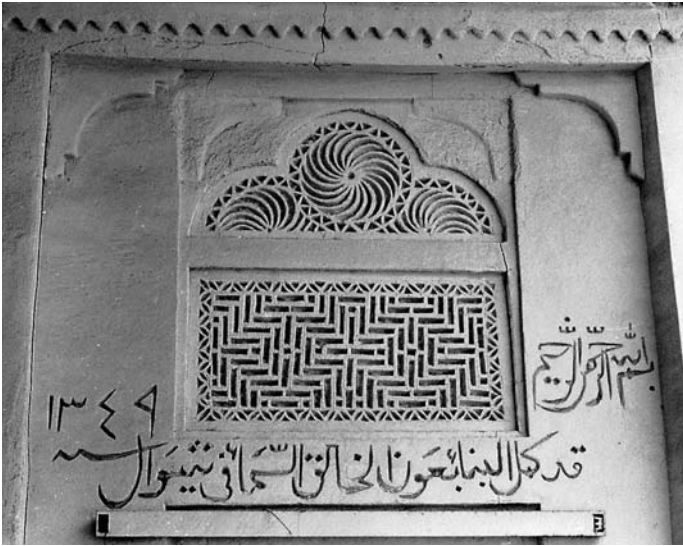 بسم الله الرحمن الرحيم
قد كمل البناء بعون الخالق السّماء في شوال
سنة ١٣٤٩